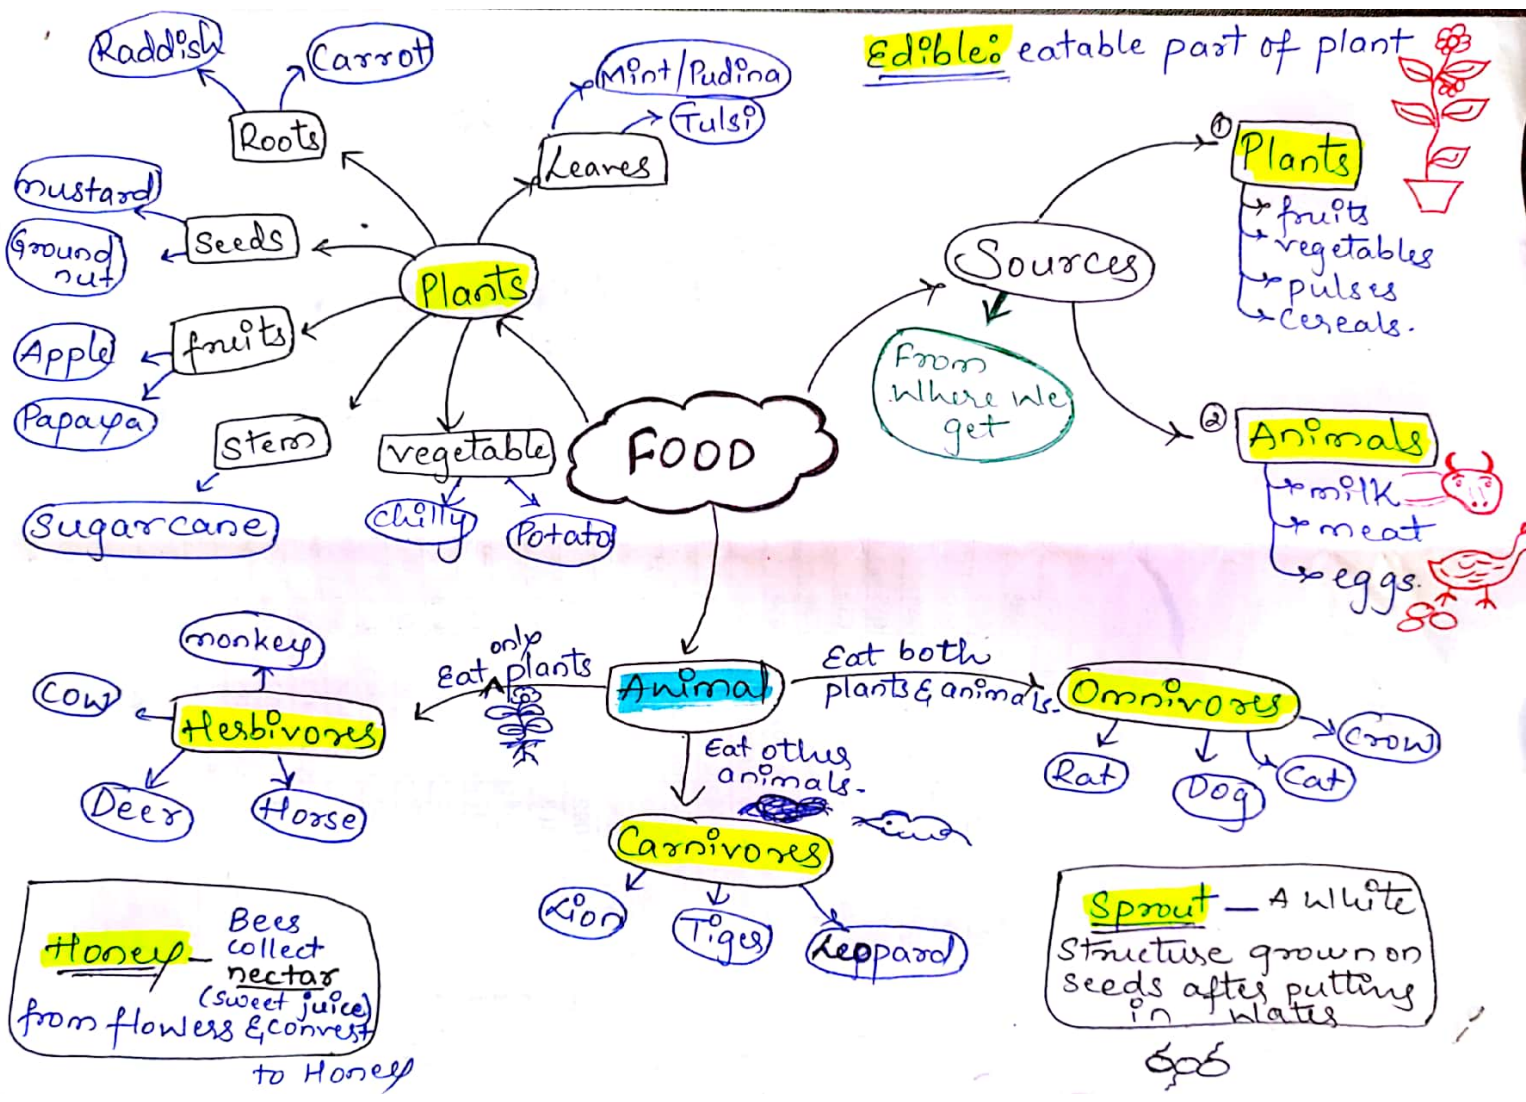 Raddish
Carrot
Roots
Mint/Pudina
Tulsi
Leaves
mustard
Ground
nut
Seeds
Plants
Apple
Papaya
fruits
Stem
Sugarcane
vegetable
chilly
Potato
FOOD
Edible: eatable part of plant
Sources
From
Where We
get
① Plants
fruits
vegetables
pulses
Cereals.
② Animals
milk
meat
eggs.
Animal
only
Eat plants
Herbivores
monkey
Cow
Deer
Horse
Eat other
animals.
Carnivores
Lion
Tiger
Leopard
Eat both
plants & animals.
Omnivores
Rat
Dog
Cat
Crow
Honey - Bees
collect
nectar
(sweet juice)
from flowers & convert
to Honey
Sprout - A White
Structure grown on
seeds after putting
in water